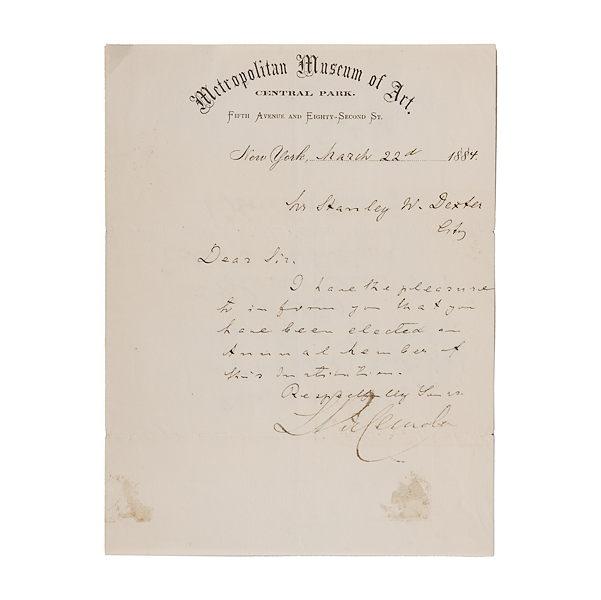 Metropolitan Museum of Art.
CENTRAL PARK.
FIFTH AVENUE AND EIGHTY-SECOND ST.
New York, March 22d 1884.
Mr Stanley W. Dexter
City
Dear Sir.
I have the pleasure
to inform you that you
have been elected an
Annual Member of
this Institution.
Respectfully Yours.